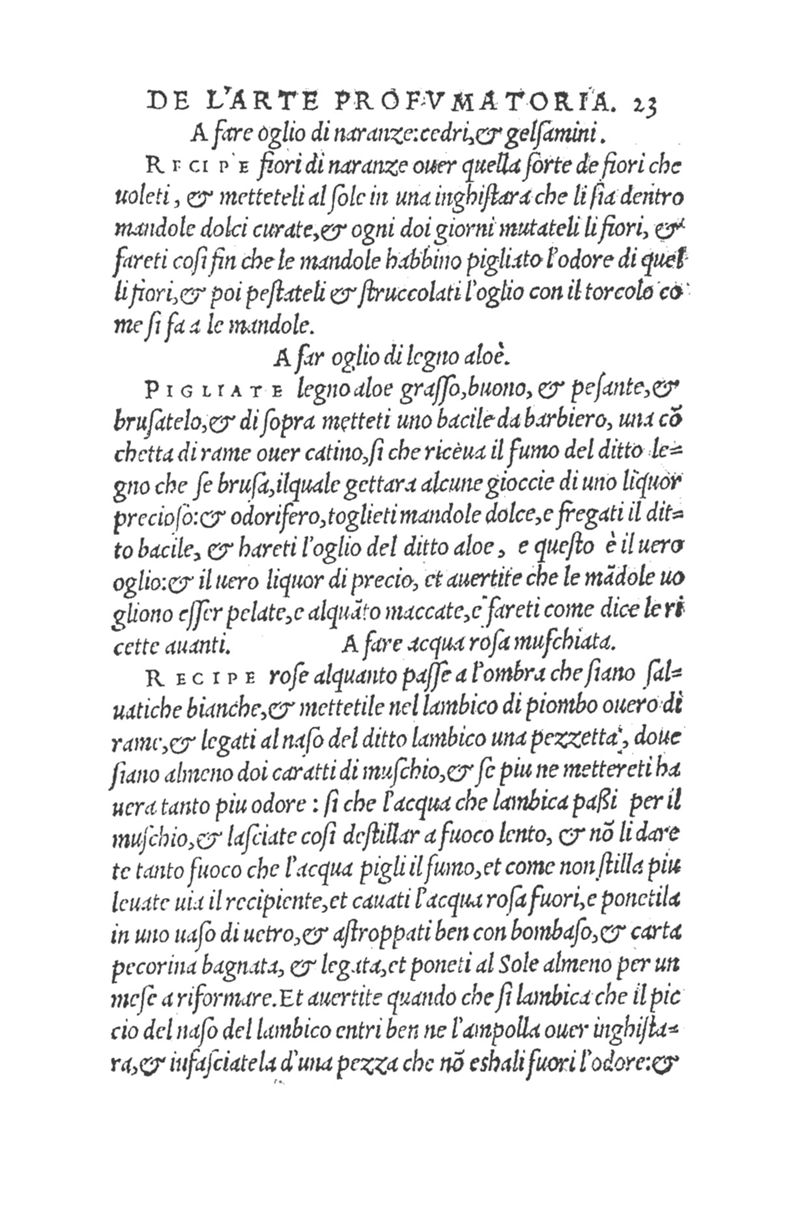 DE L'ARTE PROFVMATORIA. 23
A fare oglio di naranze:cedri,& gelſamini.
RECIPE fiori di naranze ouer quella ſorte de fiori che
uoleti, & metteteli al ſole in una inghiſtara che li ſia dentro
mandole dolci curate,& ogni doi giorni mutateli li fiori, &
fareti coſi fin che le mandole habbino pigliato l'odore di quel
li fiori,& poi peſtateli & ſtruccolati l'oglio con il torcolo co
me ſi fa a le mandole.
A far oglio di legno aloè.
PIGLIATE legno aloe graſſo,buono, & peſante,&
bruſatelo,& di ſopra metteti uno bacile da barbiero, una cõ
chetta di rame ouer catino,ſi che riceua il fumo del ditto le=
gno che ſe bruſa,ilquale gettara alcune gioccie di uno liquor
precioſo:& odorifero,toglieti mandole dolce,e fregati il dit=
to bacile, & hareti l'oglio del ditto aloe, e queſto è il uero
oglio:& il uero liquor di precio, et auertite che le mãdole uo
gliono eſſer pelate,e alquãto maccate,e fareti come dice le ri
cette auanti. A fare acqua roſa muſchiata.
RECIPE roſe alquanto paſſe a l'ombra che ſiano ſal=
uatiche bianche,& mettetile nel lambico di piombo ouero di
rame,& legati al naſo del ditto lambico una pezzetta, doue
ſiano almeno doi caratti di muſchio,& ſe piu ne mettereti ha
uera tanto piu odore : ſi che l'acqua che lambica paßi per il
muſchio,& laſciate coſi deſtillar a fuoco lento, & nõ li dare
te tanto fuoco che l'acqua pigli il fumo,et come non ſtilla piu
leuate uia il recipiente,et cauati l'acqua roſa fuori,e ponetila
in uno uaſo di uetro,& aſtroppati ben con bombaſo,& carta
pecorina bagnata, & legata,et poneti al Sole almeno per un
meſe a riformare.Et auertite quando che ſi lambica che il pic
cio del naſo del lambico entri ben ne l'ampolla ouer inghiſta=
ra,& infaſciatela d'una pezza che nõ eshali fuori l'odore:&